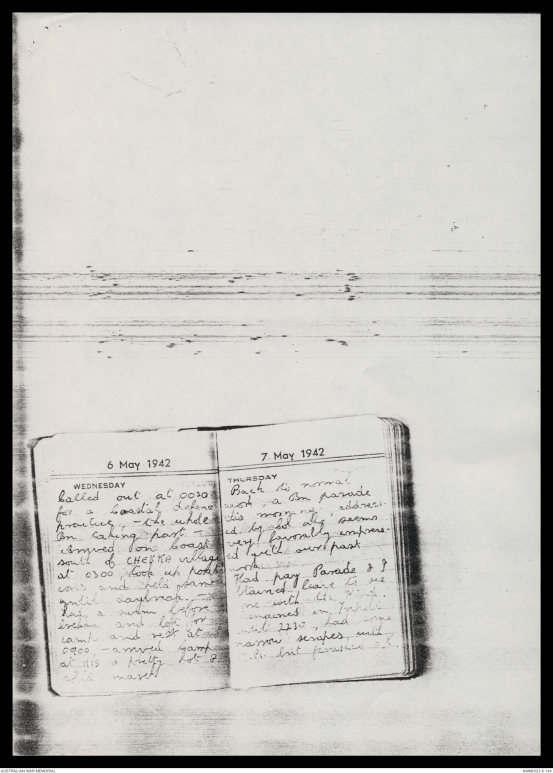 6 May 1942
WEDNESDAY
Called out at 0030
for a Coastal defence
practice, - the whole
Bn taking part -
arrived on Coast
south of CHEKKA village
at 0300, took up posit-
ions and held same
until daybreak. -
had a swim before
brekka and left for
camp and rest at
0900, - arrived camp
at 1115 a pretty hot &
solid march
7 May 1942
THURSDAY
Back to normal
work, a Bn parade
this morning, address-
ed by and seems
very favorably impress-
ed with our past
work
Had pay Parade &
tained leave to see
one with the
remained in
until 2230, had some
narrow scrapes with
but finished
AUSTRALIAN WAR MEMORIAL